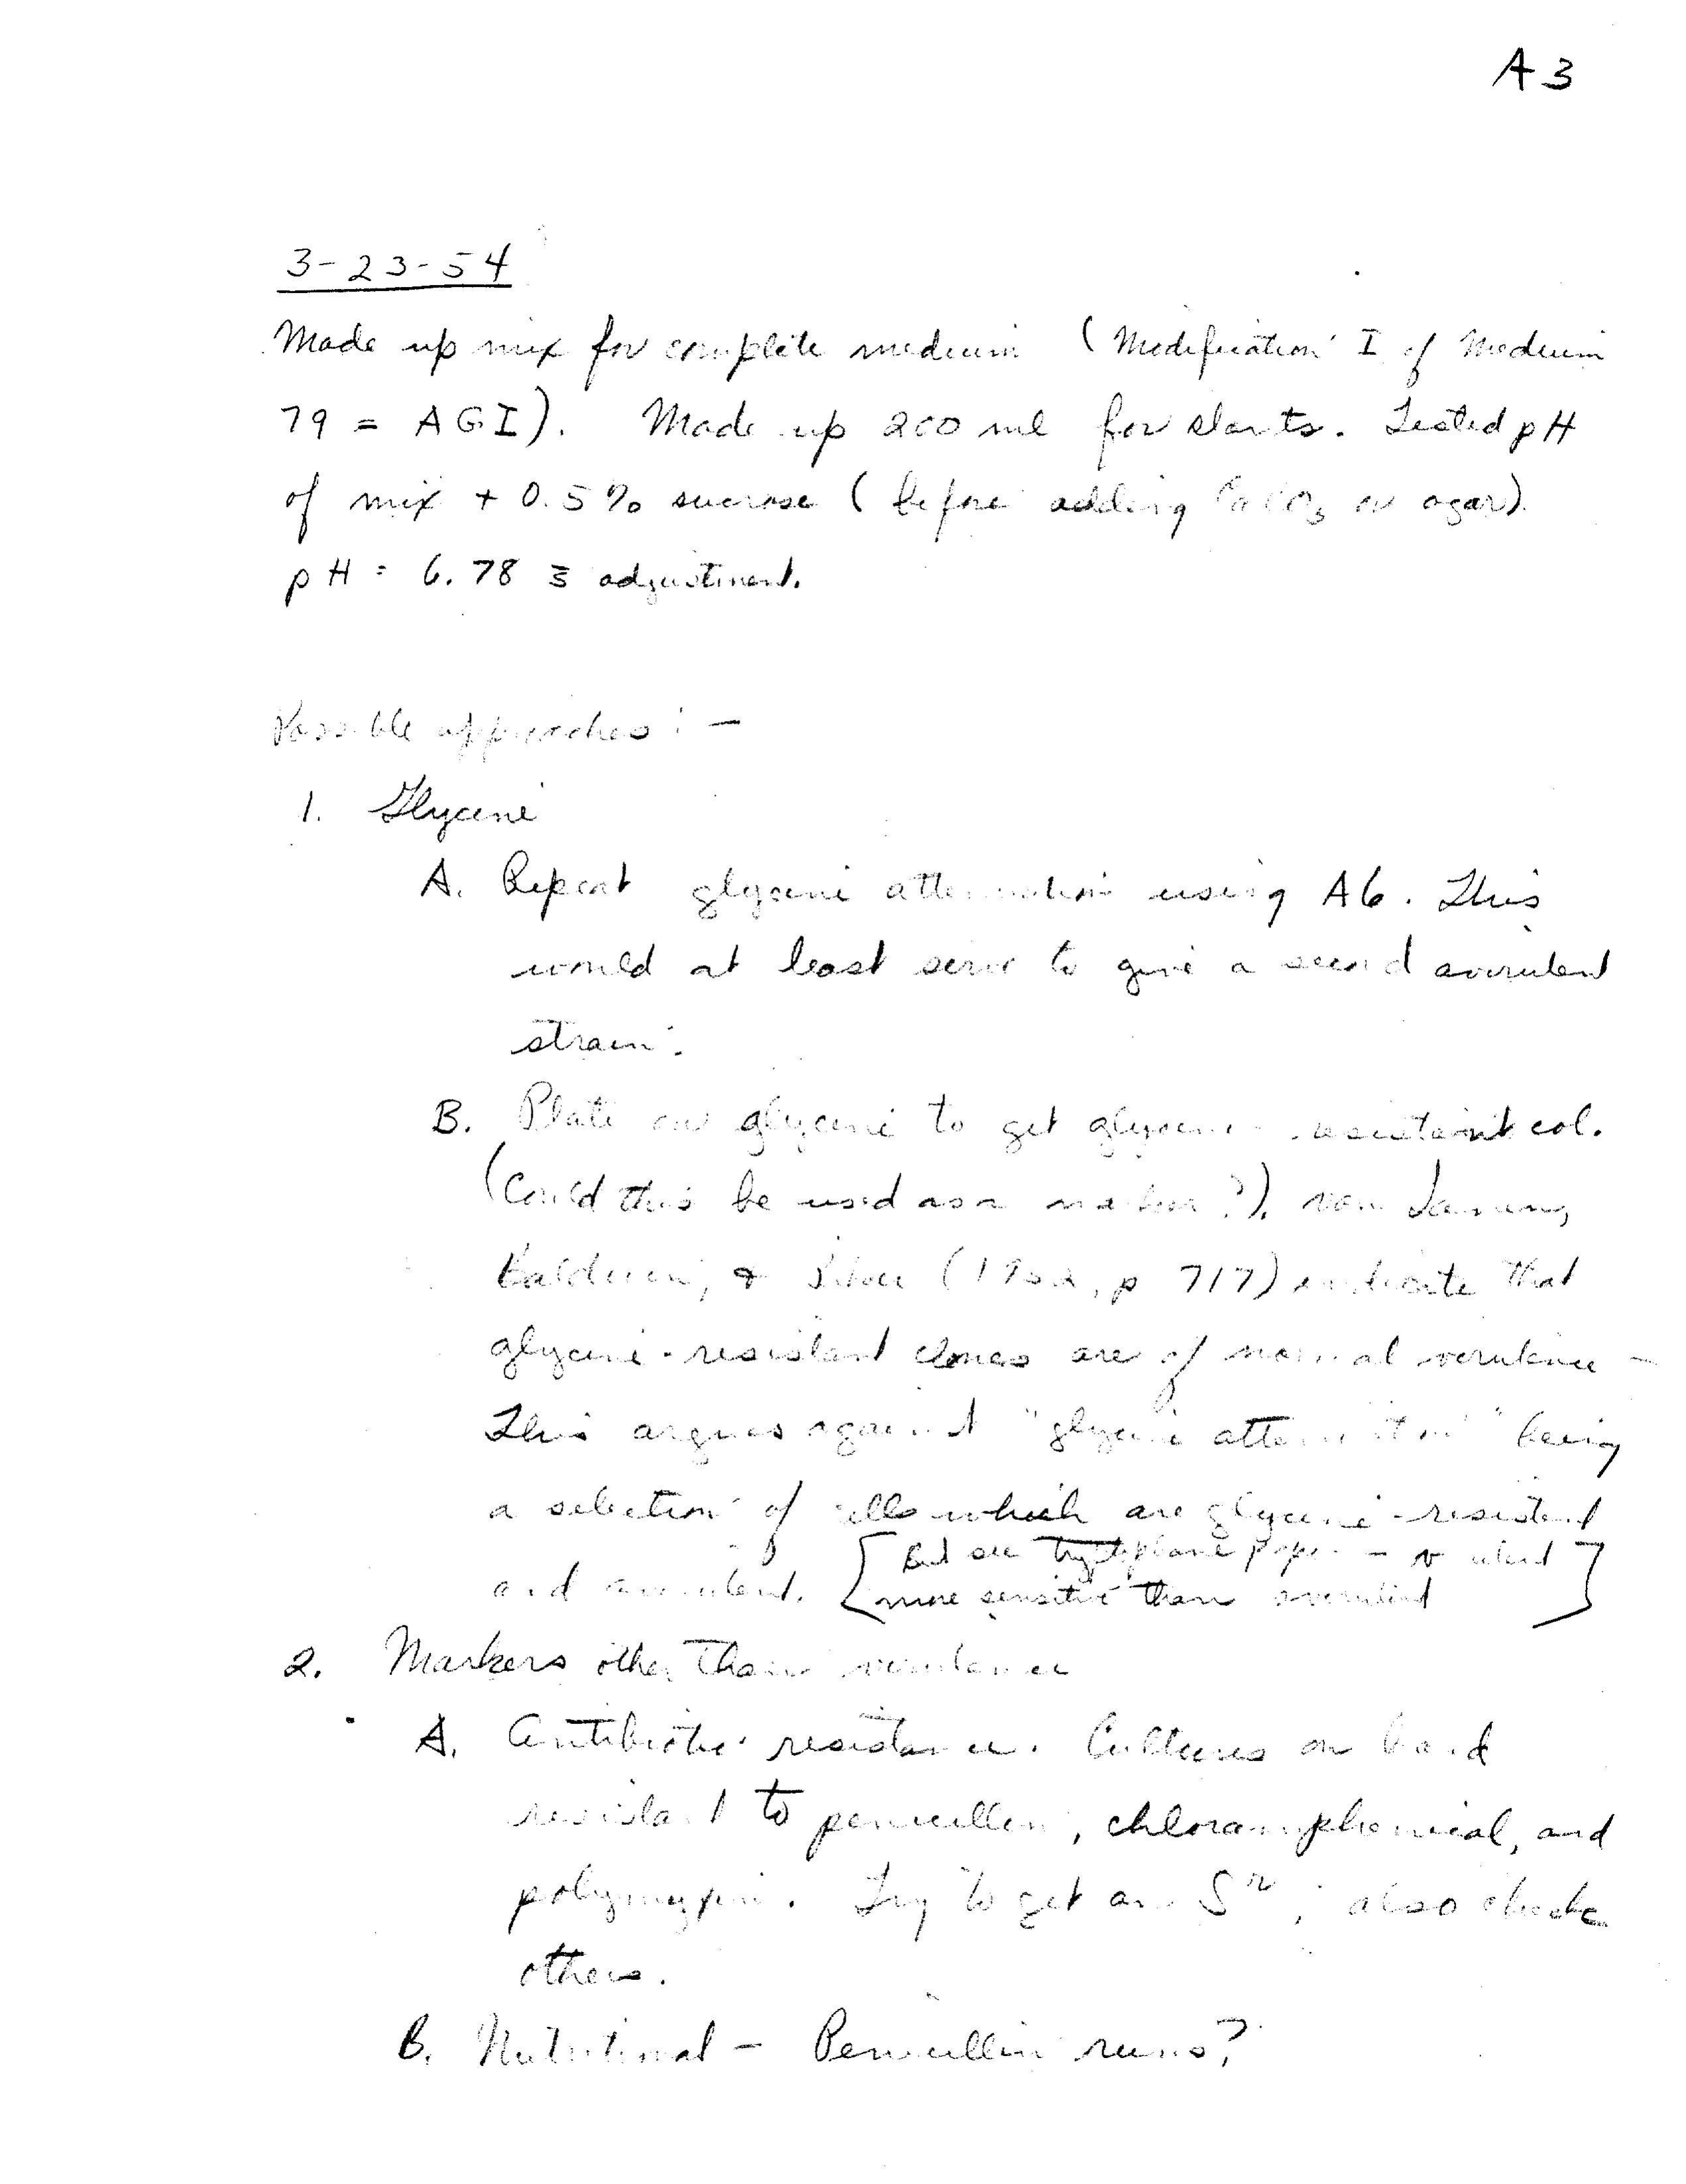 A3
3-23-54
Made up mix for complete medium (Modification I of Medium
79 = AGI). Made up 200 ml for slants. Tested pH
of mix + 0.5% sucrose (before adding CaCO3 or agar)
pH = 6.78 adjustment.
Possible approaches: -
1. Glycine
A. Repeat glycine attenuation using A6. This
would at least serve to give a second avirulent
strain.
B. Plate on glycine to get glycine-resistant col.
(Could this be used as a marker?). van Lanen,
Baldwin, & Riker (1952, p 717) indicate that
glycine-resistant clones are of normal virulence -
This argues against "glycine attenuation" being
a selection of cells which are glycine-resistant
and avirulent. [But see paper - virulent
more sensitive than avirulent]
2. Markers other than virulence
A. Antibiotic resistance. Cultures on hand
resistant to penicillin, chloramphenical, and
polymyxin. Try to get an Sr; also check
others.
B. Nutritional - Penicillin runs?